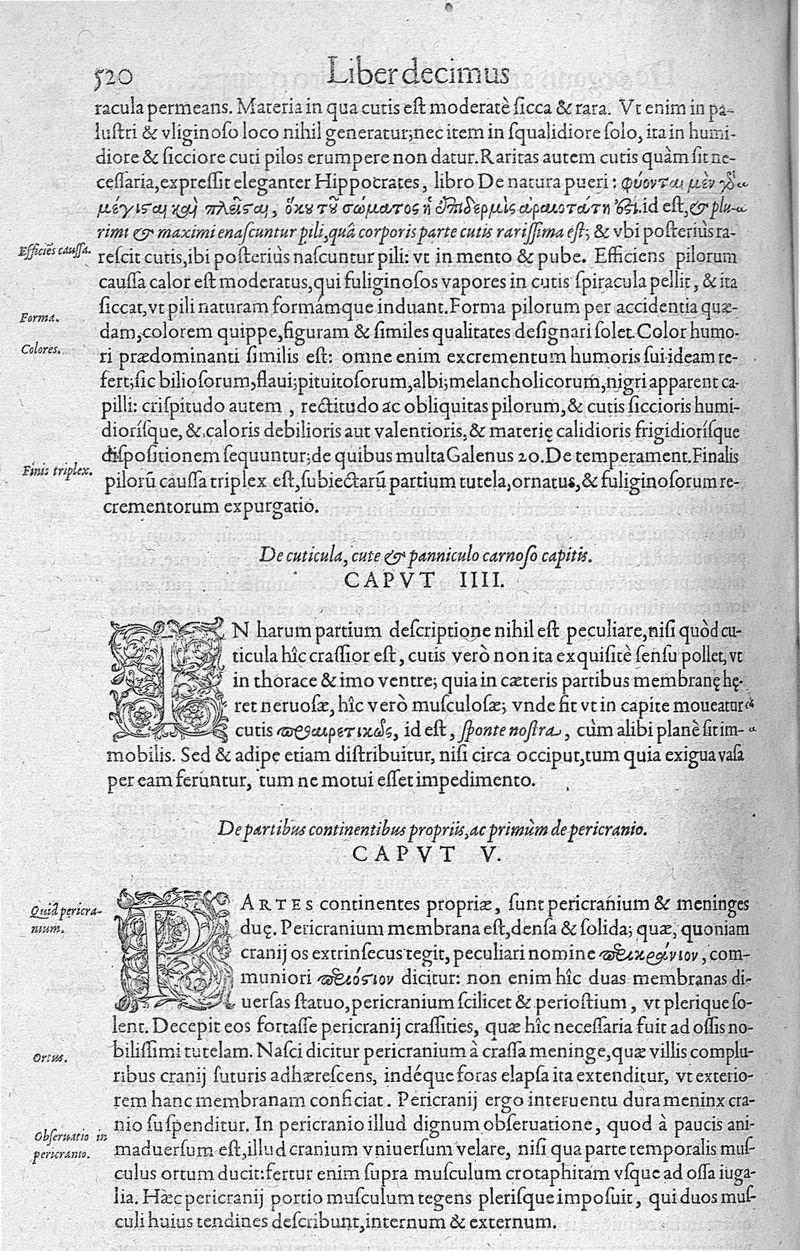 520
Liber decimus
racula permeans. Materia in qua cutis est moderatè sicca & rara. Vt enim in pa-
lustri & vliginoso loco nihil generatur; nec item in squalidiore solo, ita in humi-
diore & sicciore cuti pilos erumpere non datur. Raritas autem cutis quàm sit ne-
cessaria, expressit eleganter Hippocrates, libro De natura pueri: φύονται μὲν
μέγισται καὶ πλεῖσται, ὅκου τοῦ σώματος ἡ ἐπιδερμὶς ἀραιοτάτη ἐστι. id est, & plu-
rimi & maximi enascuntur pili, quâ corporis parte cutis rarissima est; & vbi posteriùs ra-
Efficiẽs caussa.
rescit cutis, ibi posteriùs nascuntur pili: vt in mento & pube. Efficiens pilorum
caussa calor est moderatus, qui fuliginosos vapores in cutis spiracula pellit, & ita
siccat, vt pili naturam formámque induant. Forma pilorum per accidentia quæ-
Forma.
dam, colorem quippe, figuram & similes qualitates designari solet. Color humo-
Colores.
ri prædominanti similis est: omne enim excrementum humoris sui ideam re-
fert; sic biliosorum, flaui; pituitosorum, albi; melancholicorum, nigri apparent ca-
pilli: crispitudo autem, rectitudo ac obliquitas pilorum, & cutis siccioris humi-
diorísque, & caloris debilioris aut valentioris, & materię calidioris frigidiorísque
dispositionem sequuntur; de quibus multa Galenus 20. De temperament. Finalis
Finis triplex.
pilorũ caussa triplex est, subiectarũ partium tutela, ornatus, & fuliginosorum re-
crementorum expurgatio.
De cuticula, cute & panniculo carnoso capitis.
CAPVT IIII.
IN harum partium descriptione nihil est peculiare, nisi quòd cu-
ticula hîc crassior est, cutis verò non ita exquisitè sensu pollet, vt
in thorace & imo ventre; quia in cæteris partibus membranę hę-
ret neruosæ, hîc verò musculosæ; vnde fit vt in capite moueatur
cutis προαιρετικῶς, id est, sponte nostra, cùm alibi planè sit im-
mobilis. Sed & adipe etiam distribuitur, nisi circa occiput, tum quia exigua vasa
per eam feruntur, tum ne motui esset impedimento.
De partibus continentibus propriis, ac primùm de pericranio.
CAPVT V.
PARTES continentes propriæ, sunt pericranium & meninges
Quid pericra-
nium.
duę. Pericranium membrana est, densa & solida; quæ, quoniam
cranij os extrinsecus tegit, peculiari nomine περικράνιον, com-
muniori περιόστιον dicitur: non enim hîc duas membranas di-
uersas statuo, pericranium scilicet & periostium, vt plerique so-
lent. Decepit eos fortasse pericranij crassities, quæ hîc necessaria fuit ad ossis no-
bilissimi tutelam. Nasci dicitur pericranium à crassa meninge, quæ villis complu-
Ortus.
ribus cranij suturis adhærescens, indéque foras elapsa ita extenditur, vt exterio-
rem hanc membranam conficiat. Pericranij ergo interuentu dura meninx cra-
nio suspenditur. In pericranio illud dignum obseruatione, quod à paucis ani-
Obseruatio in
pericranio.
maduersum est, illud cranium vniuersum velare, nisi qua parte temporalis mus-
culus ortum ducit: fertur enim supra musculum crotaphitam vsque ad ossa iuga-
lia. Hæc pericranij portio musculum tegens plerisque imposuit, qui duos mus-
culi huius tendines describunt, internum & externum.